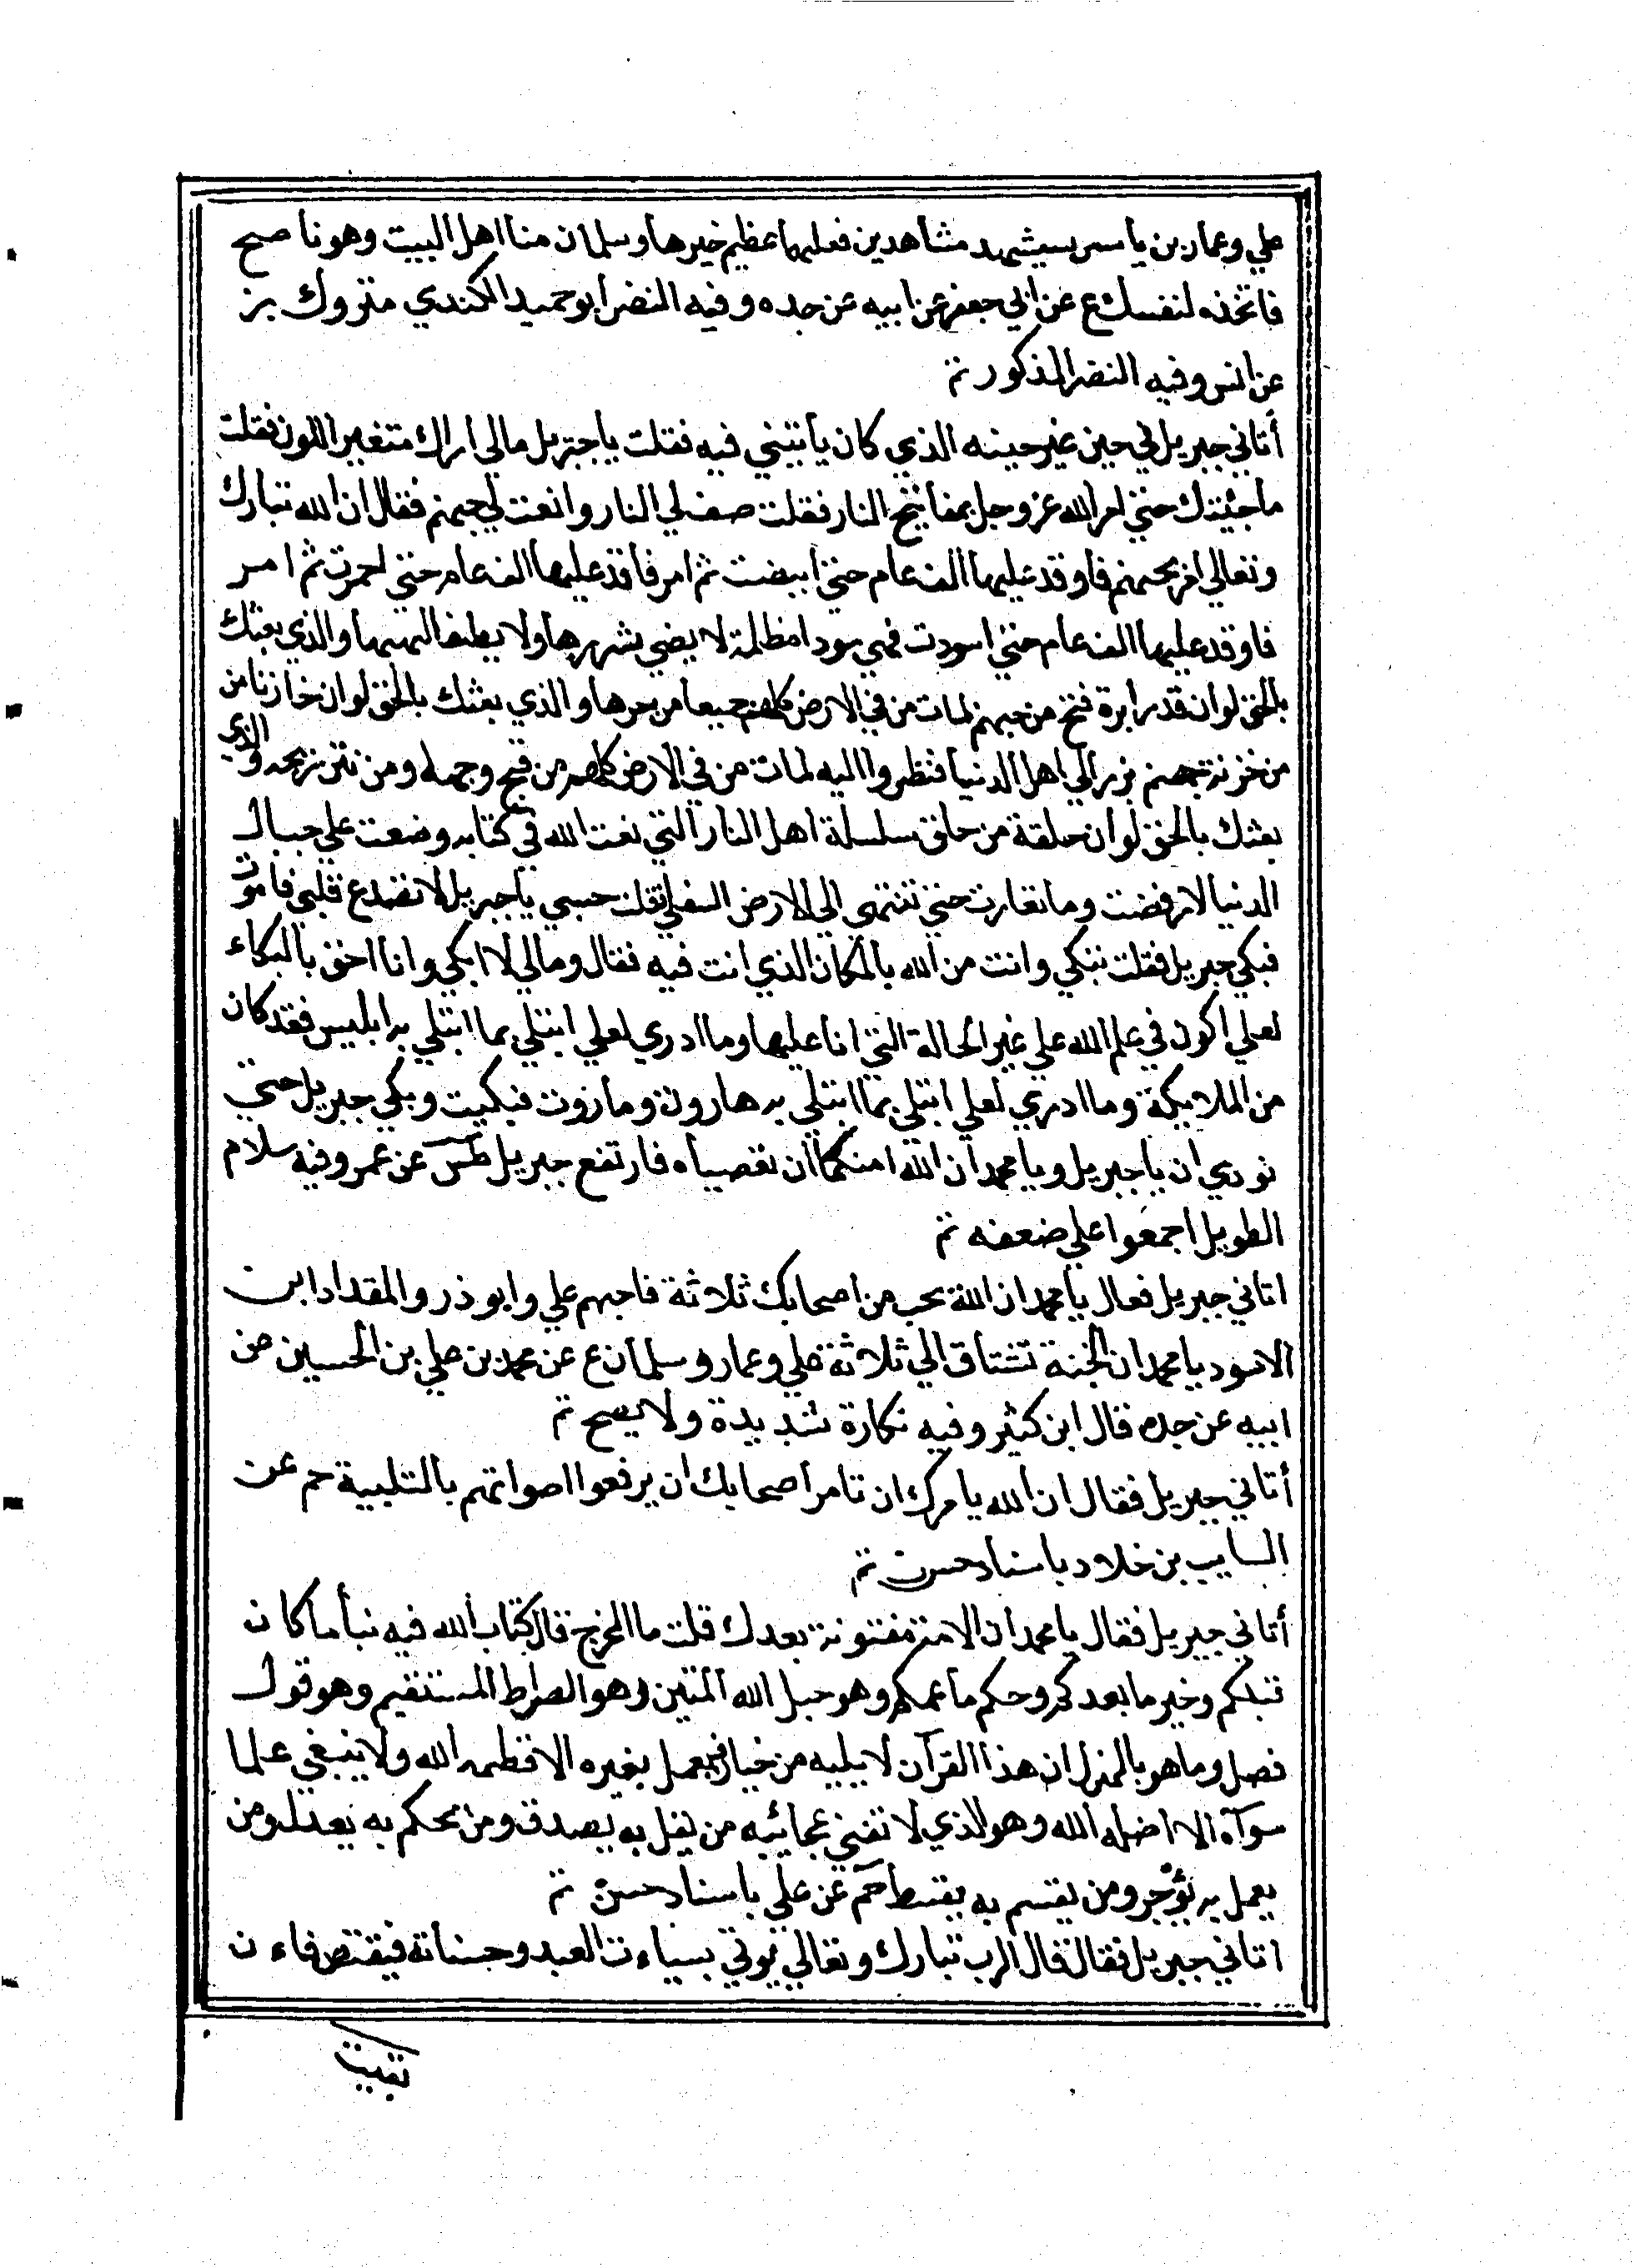 علي وعمار بن ياسر سيشهد مشاهد بن فعليها عظيم خيرها وسلمان منا اهل البيت وهو ناصح
فاتخذه لنفسك ع عن ابي جعفر عن ابيه عن جده وفيه النضر ابو حميد الكندي متروك بز
عن انس وفيه النضر المذكور تم
أتاني جبريل في حين غير حينه الذي كان يأتيني فيه فقلت يا جبريل مالي اراك متغير اللون فقلت
ما جئتك حتي امر الله عز وجل بمفاتيح النار فقلت صف لي النار وانعت لي جهنم فقال ان الله تبارك
وتعالي امر بجهنم فاوقد عليها الف عام حتي ابيضت ثم امر فاوقد عليها الف عام حتي احمرت ثم امر
فاوقد عليها الف عام حتي اسودت فهي سودا مظلمة لا يضي شررها ولا يطفا لهبها والذي بعثك
بالحق لو ان قدر أبرة فتح من جهنم لمات من في الارض كلهم جميعا من حرها والذي بعثك بالحق لو ان خازنا من
من خزنة جهنم برز الي اهل الدنيا فنظروا اليه لمات من في الارض كلهم من قبح وجهه ومن نتن ريحه والذي
بعثك بالحق لو ان حلقة من حلق سلسلة اهل النار التي نعت الله في كتابه وضعت علي جبال
الدنيا لارفضت وما تقارت حتي تنتهي الي الارض السفلي فقلت حسبي يا جبريل لا تضدع قلبي فاموت
فبكي جبريل فقلت تبكي وانت من الله بالمكان الذي انت فيه فقال ومالي لا ابكي وانا احق بالبكاء
لعلي اكون في علم الله علي غير الحالة التي انا عليها وما ادري لعلي ابتلي بما ابتلي به ابليس فقد كان
من الملايكة وما ادري لعلي ابتلي بما ابتلي به هاروت ومارون فبكيت وبكي جبريل حتي
نودي ان يا جبريل ويا محمد ان الله امنكما ان تعصياه فارتفع جبريل طس عن عمر وفيه سلام
الطويل اجمعوا علي ضعفه تم
اتاني جبريل فعال يا محمد ان الله يحب من اصحابك ثلاثة فاحبهم علي وابو ذر والمقداد ابن
الاسود يا محمد ان الجنة تشتاق الي ثلاثة علي وعمار وسلمان ع عن محمد بن علي بن الحسين عن
ابيه عن جده قال ابن كثير وفيه نكارة شديدة ولا يصح تم
أتاني جبريل فقال ان الله يامرك ان تامر أصحابك ان يرفعوا اصواتهم بالتلبية حم عن
السايب بن خلاد باسناد حسن تم
أتاني جبريل فقال يا محمد ان الامة مفتونة بعدك قلت ما المخرج قال كتاب الله فيه نبأ ما كان
قبلكم وخبر ما بعدكم وحكم ما بينكم وهو حبل الله المتين وهو الصراط المستقيم وهو قول
فصل وما هو بالهزل ان هذا القرآن لا يليه من جبار فيعمل بغيره الا قطمه الله ولا يبتغي علما
سواه الا اضله الله وهو الذي لا تفني عجائبه من يقل به يصدق ومن يحكم به يعدل ومن
يعمل به يؤجر ومن يقسم به يقسط حم عن علي باسناد حسن تم
اتاني جبريل فقال قال الرب تبارك وتعالي يوتي بسيات العبد وحسناته فيقتص فاءن
بقيت